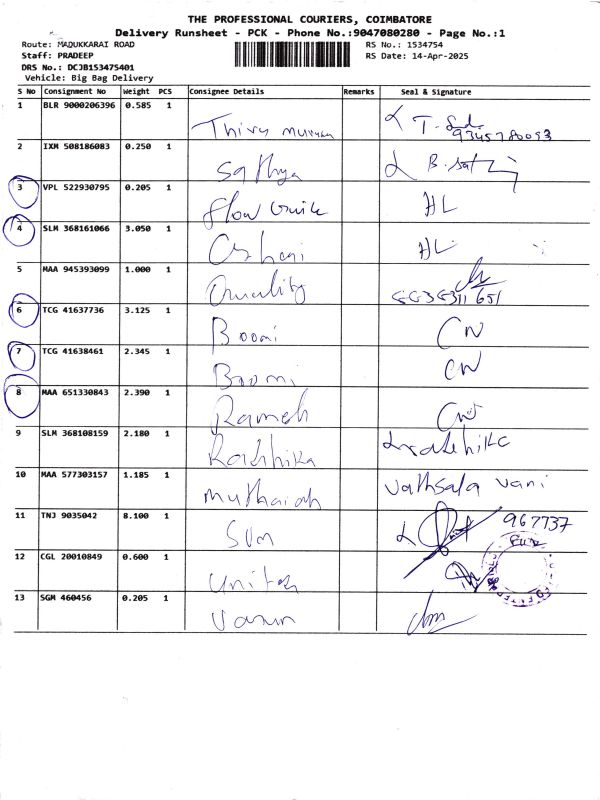 THE PROFESSIONAL COURIERS, COIMBATORE
Delivery Runsheet - PCK - Phone No.:9047080280 - Page No.:1
Route: MADUKKARAI ROAD RS No.: 1534754
Staff: PRADEEP RS Date: 14-Apr-2025
DRS No.: DCJB1534754D1
Vehicle: Big Bag Delivery
S No Consignment No Weight PCS Consignee Details Remarks Seal & Signature
1 BLR 9000206396 0.585 1 Thiru murugan T.
2 IXM 508186083 0.250 1 Sathya B.
3 VPL 522930795 0.205 1 flow HL
4 SLM 368161066 3.050 1 HL
5 MAA 945393099 1.000 1 Quality
6 TCG 41637736 3.125 1 Boomi CN
7 TCG 41638461 2.345 1 Boomi CN
8 MAA 651330843 2.390 1 Ramesh CN
9 SLM 368108159 2.180 1 Radhika
10 MAA 577303157 1.185 1 muthaiah Vathsala vani
11 TNJ 9035042 8.100 1 Sun 967737
12 CGL 20010849 0.600 1
13 SGM 460456 0.205 1 Varun